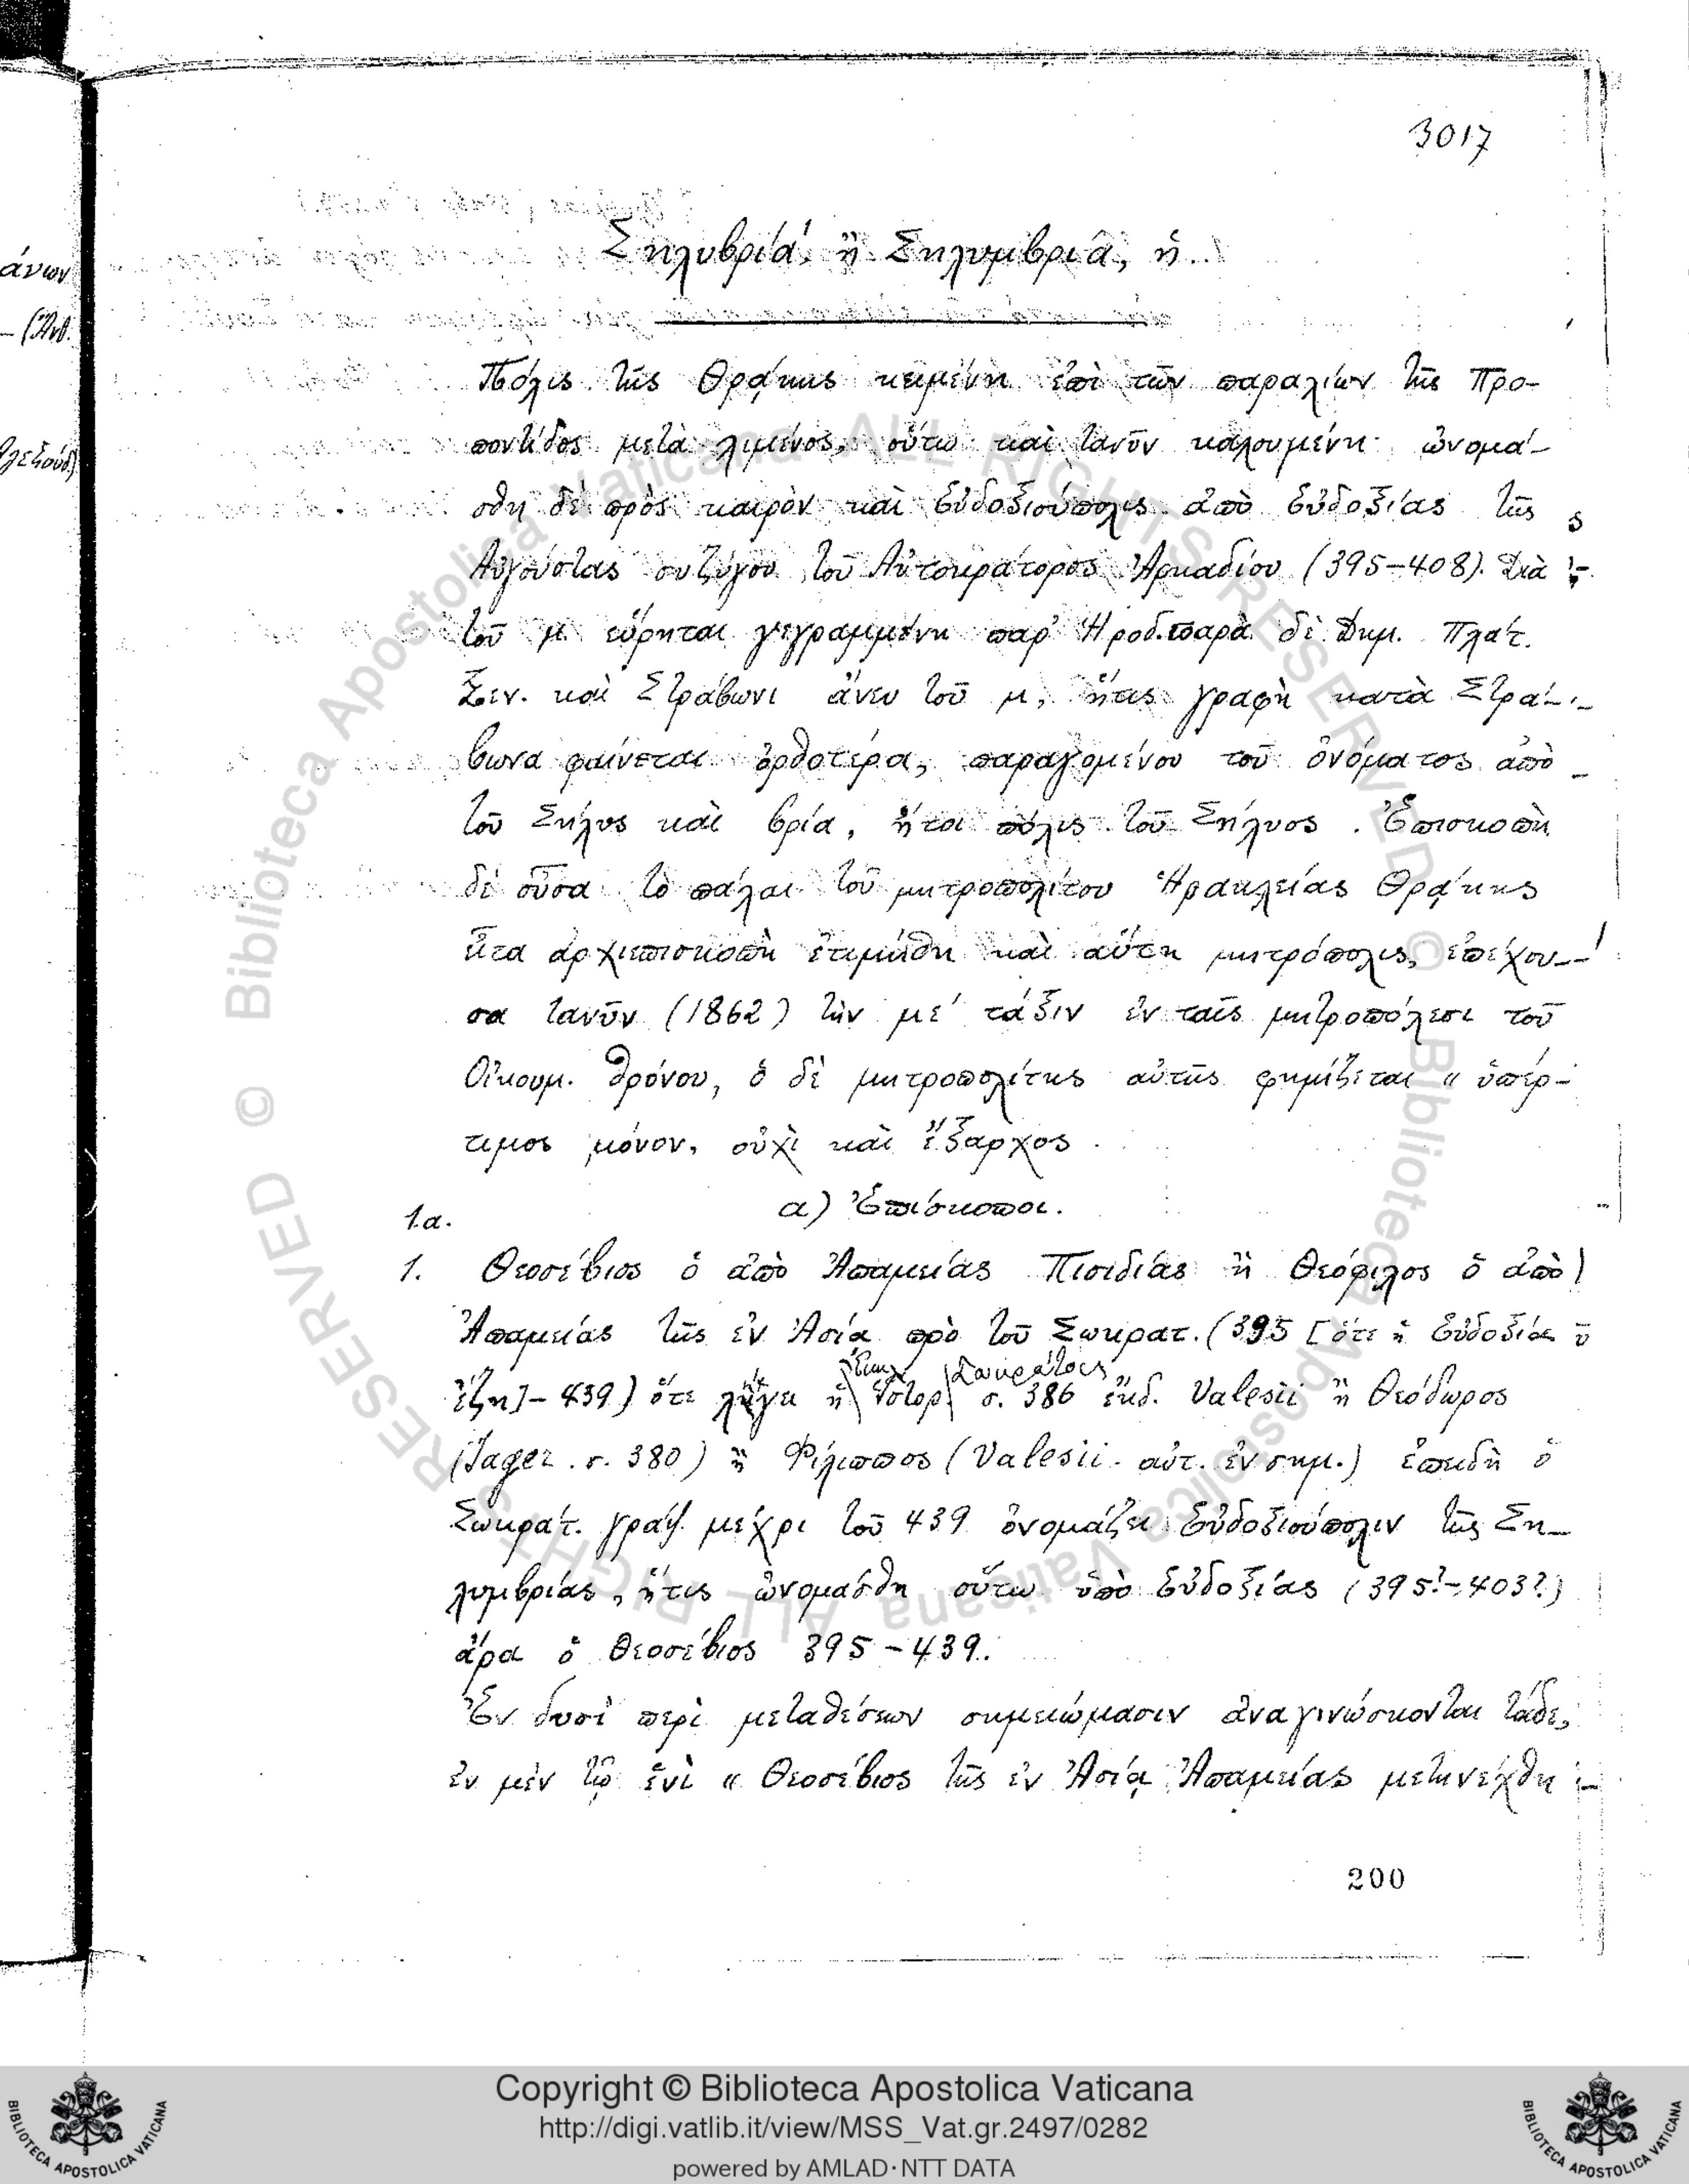 3017
Σηλυβρία ἢ Σηλυμβρία, ἡ..
άνων
– (Ἀνθ.
Πόλις τῆς Θρᾴκης κειμένη ἐπὶ τῶν παραλίων τῆς Προ-
ποντίδος μετὰ λιμένος, οὕτω καὶ τανῦν καλουμένη· ὠνομά-
σθη δὲ πρὸς καιρὸν καὶ Εὐδοξιούπολις ἀπὸ Εὐδοξίας τῆς
Αὐγούστας συζύγου τοῦ Αὐτοκράτορος Ἀρκαδίου (395–408). Διὰ
τοῦ μ εὕρηται γεγραμμένη παρ' Ἡροδ. παρὰ δὲ Δημ. Πλάτ.
Ξεν. καὶ Στράβωνι ἄνευ τοῦ μ, ἥτις γραφὴ κατὰ Στρά-
βωνα φαίνεται ὀρθοτέρα, παραγομένου τοῦ ὀνόματος ἀπὸ
τοῦ Σήλυς καὶ βρία, ἤτοι πόλις τοῦ Σήλυος. Ἐπισκοπὴ
δὲ οὖσα τὸ πάλαι τοῦ μητροπολίτου Ἡρακλείας Θρᾴκης
εἶτα ἀρχιεπισκοπὴ ἐτιμήθη καὶ αὕτη μητρόπολις, ἐπέχου-
σα τανῦν (1862) τὴν με' τάξιν ἐν ταῖς μητροπόλεσι τοῦ
Οἰκουμ. θρόνου, ὁ δὲ μητροπολίτης αὐτῆς φημίζεται « ὑπέρ-
τιμος μόνον, οὐχὶ καὶ ἔξαρχος.
α) Ἐπίσκοποι.
1.α.
1. Θεοσέβιος ὁ ἀπὸ Ἀπαμείας Πισιδίας ἢ Θεόφιλος ὁ ἀπὸ
Ἀπαμείας τῆς ἐν Ἀσίᾳ πρὸ τοῦ Σωκρατ. (395 [ὅτε ἡ Εὐδοξία
ἔζη] – 439) ὅτε λήγει ἡ Ἐκκλ. Ἱστορ. Σωκράτους σ. 386 ἔκδ. Valesii ἢ Θεόδωρος
(Jager. σ. 380) ἢ Φίλιππος (Valesii. αὐτ. ἐν σημ.) ἐπειδὴ ὁ
Σωκράτ. γράψ. μέχρι τοῦ 439 ὀνομάζει Εὐδοξιούπολιν τῆς Ση-
λυμβρίας, ἥτις ὠνομάσθη οὕτω ὑπὸ Εὐδοξίας (395?–403?)
ἄρα ὁ Θεοσέβιος 395–439.
Ἐν δυσὶ περὶ μεταθέσεων σημειώμασιν ἀναγινώσκονται τάδε,
ἐν μὲν τῷ ἑνὶ « Θεοσέβιος τῆς ἐν Ἀσίᾳ Ἀπαμείας μετηνέχθη
200
Copyright © Biblioteca Apostolica Vaticana
http://digi.vatlib.it/view/MSS_Vat.gr.2497/0282
powered by AMLAD·NTT DATA
BIBLIOTECA APOSTOLICA VATICANA
BIBLIOTECA APOSTOLICA VATICANA
© Biblioteca Apostolica Vaticana ALL RIGHTS RESERVED © Biblioteca Apostolica Vaticana ALL RIGHTS RESERVED